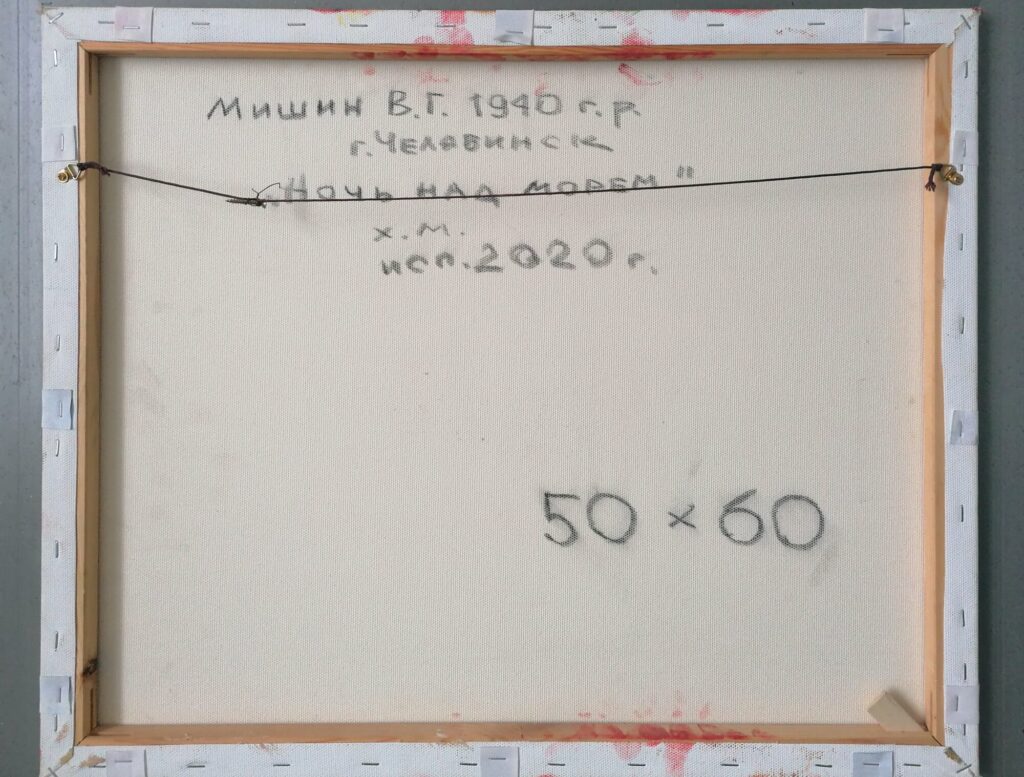 Мишин В.Г. 1940 г.р.
г. Челябинск
"Ночь над морем"
х.м.
исп. 2020 г.
50 × 60